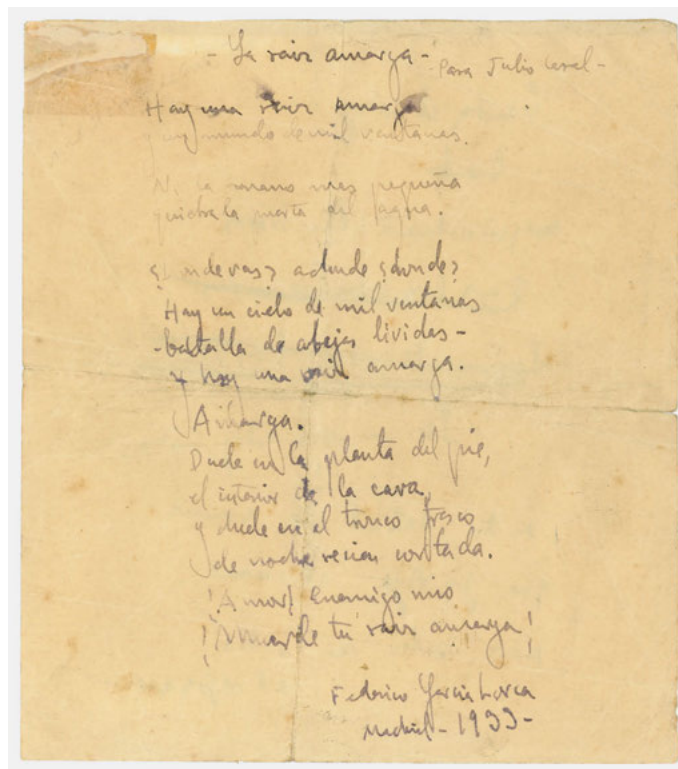 - La raiz amarga -
Para Julio
Hay una raiz amarga
y un mundo de mil ventanas.
Ni la mano mas pequeña
quiebra la puerta del agua.
¿Donde vas? adonde ¿donde?
Hay un cielo de mil ventanas
-batalla de abejas lividas-
y hay una raiz amarga.
Amarga.
Duele en la planta del pie,
el interior de la cara,
y duele en el tronco fresco
de noche recien cortada.
¡Amor! Enemigo mio
¡Muerde tu raiz amarga!
Federico Garcia Lorca
Madrid - 1933 -